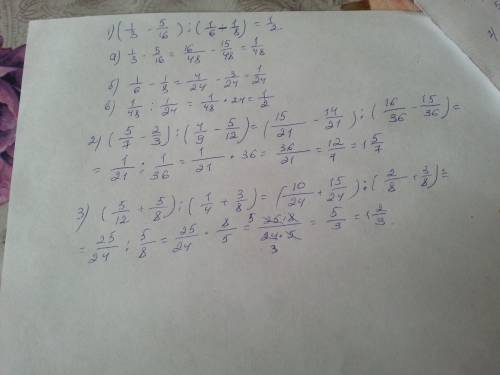 1) (1/3 - 5/16) : (1/6 - 1/8) = 1/2
а) 1/3 - 5/16 = 16/48 - 15/48 = 1/48
б) 1/6 - 1/8 = 4/24 - 3/24 = 1/24
в) 1/48 : 1/24 = 1/48 * 24 = 1/2
2) (5/7 - 2/3) : (4/9 - 5/12) = (15/21 - 14/21) : (16/36 - 15/36) =
= 1/21 : 1/36 = 1/21 * 36 = 36/21 = 12/7 = 1 5/7
3) (5/12 + 5/8) : (1/4 + 3/8) = (10/24 + 15/24) : (2/8 + 3/8) =
= 25/24 : 5/8 = 25/24 * 8/5 = 5 25*8/24*5 3 = 5/3 = 1 2/3.